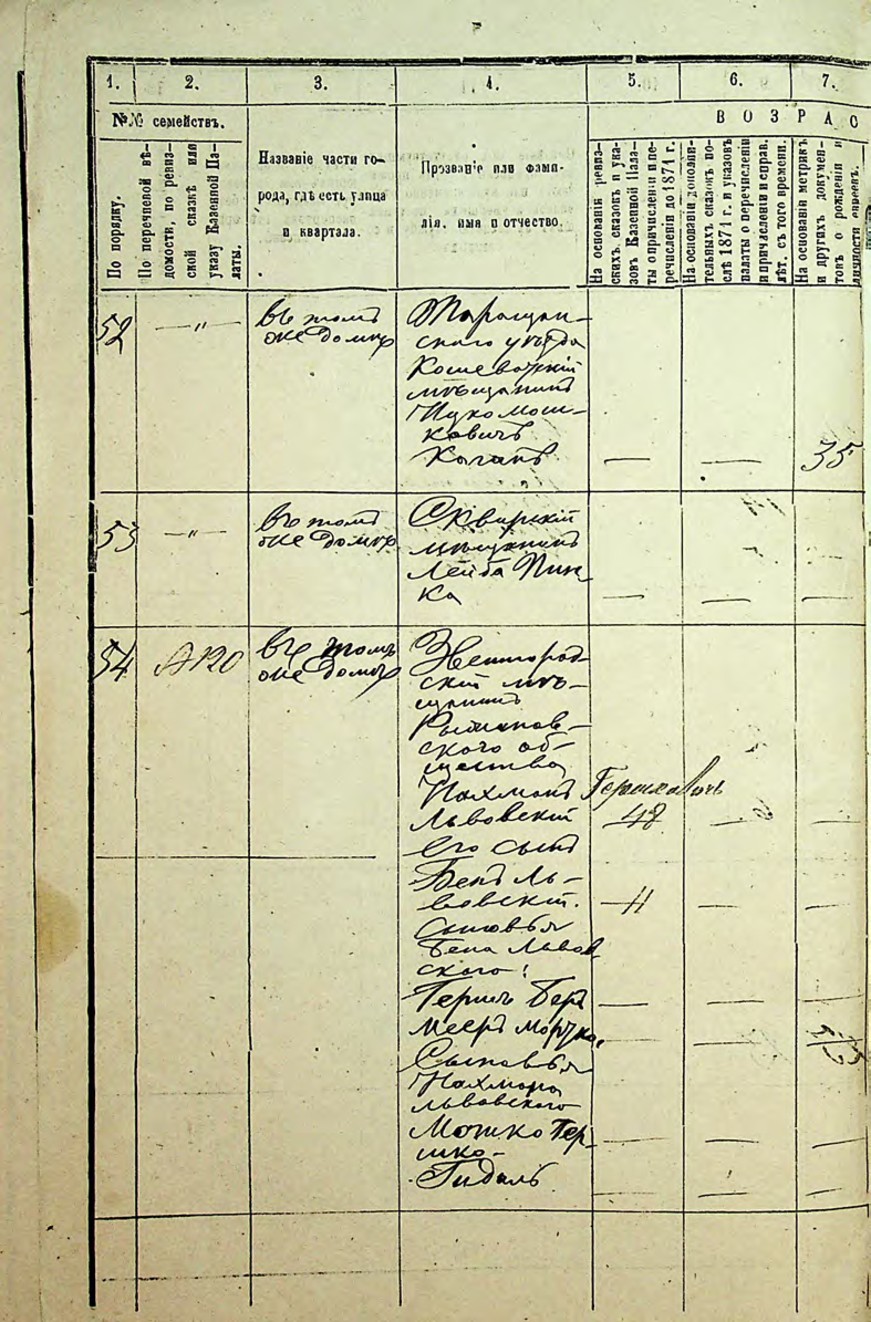 1.
2.
3.
4.
5.
6.
7.
№№ семействъ.
По порядку.
По перечневой вѣ-
домости, по ревиз-
ской сказкѣ или
указу Казенной Па-
латы.
Названіе части го-
рода, гдѣ есть улица
и квартала.
Прозваніе или фами-
лія, имя и отчество.
ВОЗРАС
На основаніи ревиз-
скихъ сказокъ и ука-
зовъ Казенной Пала-
ты о причисленіи и пе-
речисленіи до 1871 г.
На основаніи дополни-
тельныхъ сказокъ по-
слѣ 1871 г. и указовъ
палаты о перечисленіи
и причисленіи и справ.
лѣт. съ того времени.
На основаніи метрикъ
и другихъ докумен-
товъ о рожденіи и
личности евреевъ.
52
—"—
въ томъ
же домѣ
Таращан-
скаго уѣзда
Кошеватскій
мѣщанинъ
Ицко Мош-
ковичъ
Коганъ
— — 35
53
—"—
въ томъ
же домѣ
Сквирскій
мѣщанинъ
Лейба Пин-
ка
— — —
54
№120
въ томъ
же домѣ
Звенигород-
скій мѣ-
щанинъ
Рыжанов-
ского об-
щества
Нахманъ Гершковичъ
Львовскій 48 — —
его сынъ
Бенъ Ль-
вовскій. —11 — —
Сыновья
Бена Львов-
ского:
Гершъ Беръ — — —
Мееръ Мортко.
Сыновья
Нахмана
Львовского
Мошко Гер-
шко-
Гидаль